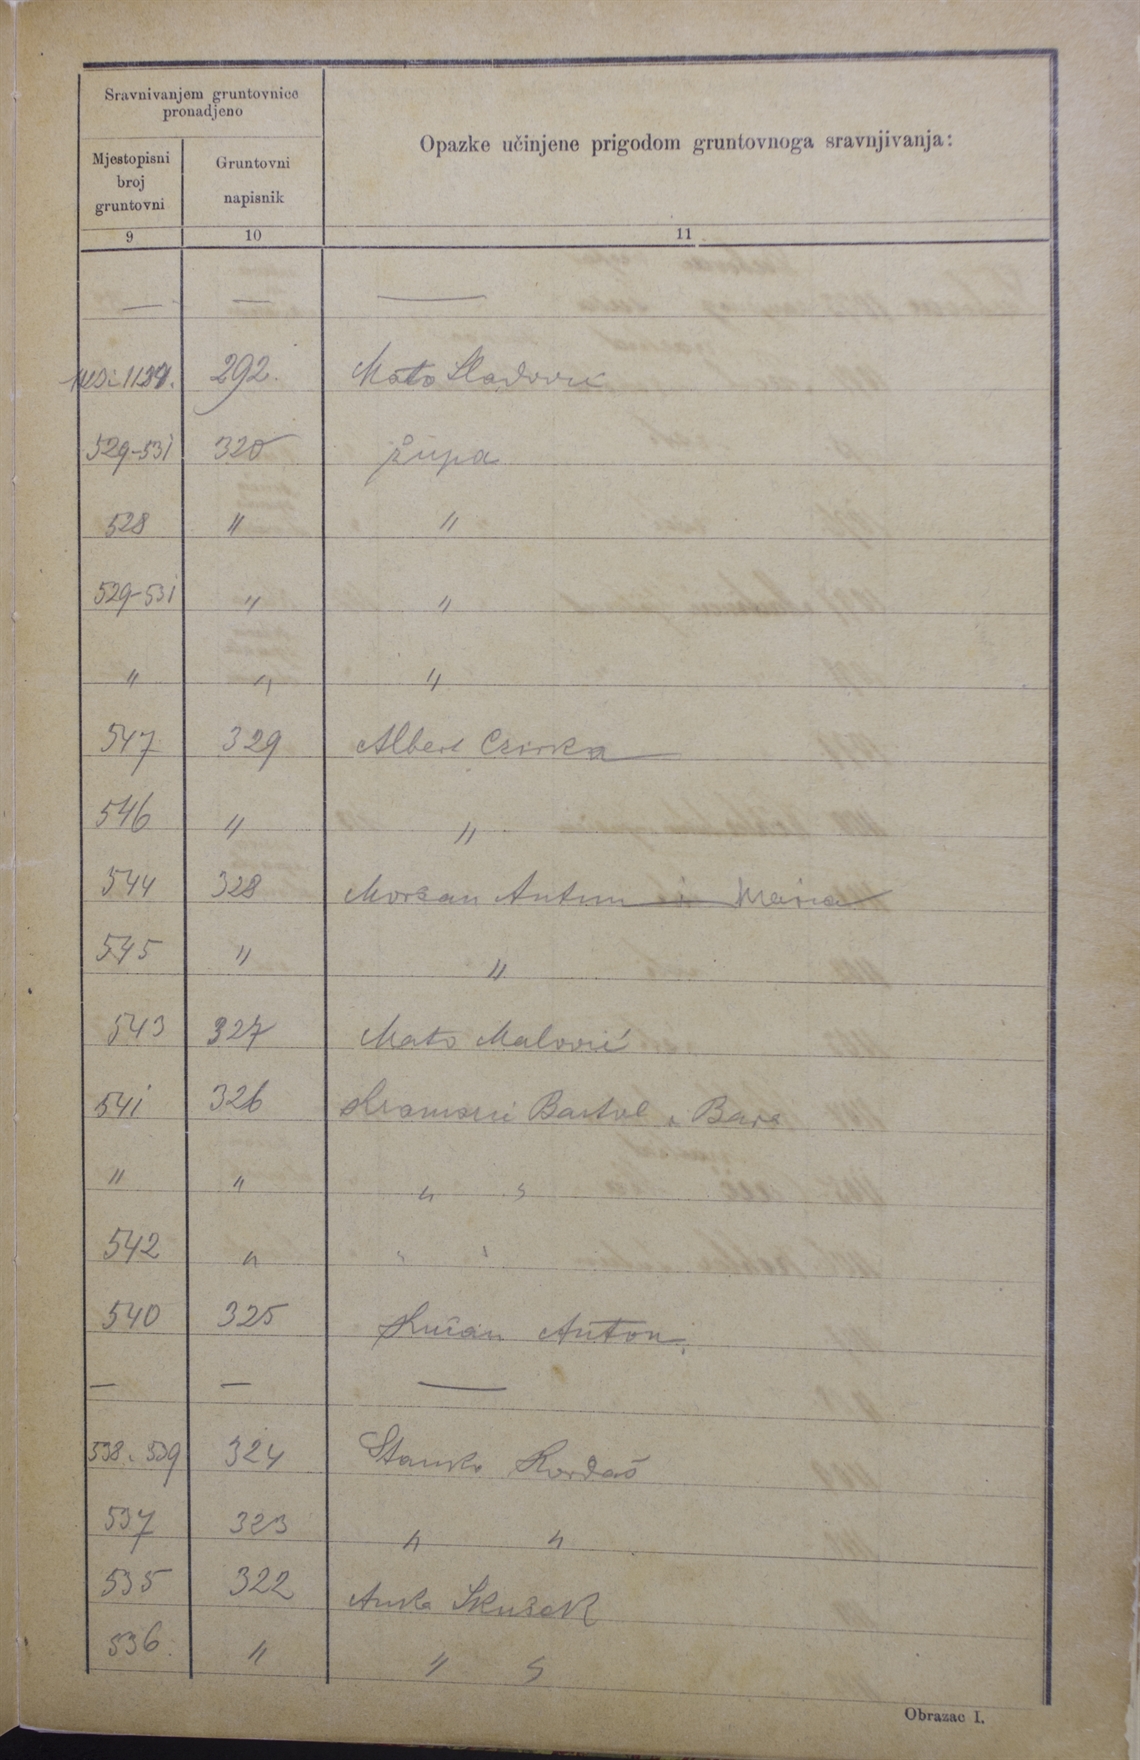 Sravnivanjem gruntovnice
pronadjeno
Opazke učinjene prigodom gruntovnoga sravnjivanja:
Mjestopisni
broj
gruntovni
Gruntovni
napisnik
9 10 11
— — —
292. Mato
529-531 320 Župa
528 " "
529-531 " "
" " "
547 329 Albert
546 " "
544 328 Antun i Maria
545 " "
543 327 Mato Malović
541 326 Bartol i Bara
" " " "
542 " " "
540 325 Anton
— — —
538 i 539 324 Stanko Kordaš
537 323 " "
535 322 Anka
536. " " "
Obrazac I.